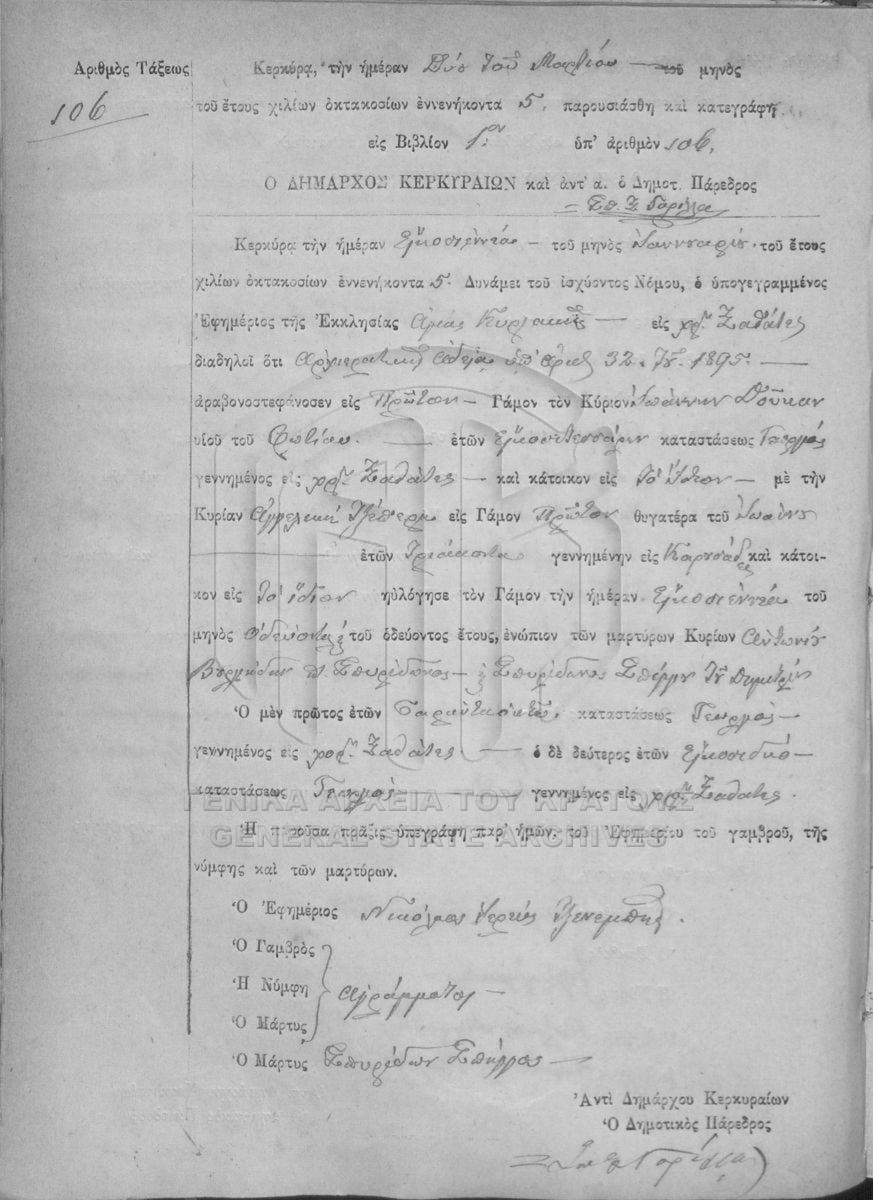 Ἀριθμὸς Τάξεως
106
Κερκύρα, τὴν ἡμέραν Δύο τοῦ Μαρτίου — τοῦ μηνὸς
τοῦ ἔτους χιλίων ὀκτακοσίων ἐννενήκοντα 5. παρουσιάσθη καὶ κατεγράφη
εἰς Βιβλίον 1ον ὑπ' ἀριθμὸν 106,
Ο ΔΗΜΑΡΧΟΣ ΚΕΡΚΥΡΑΙΩΝ καὶ ἀντ' α. ὁ Δημοτ. Πάρεδρος
Κερκύρα τὴν ἡμέραν Εἴκοσι ἐννέα — τοῦ μηνὸς Ἰαννουαρίου. τοῦ ἔτους
χιλίων ὀκτακοσίων ἐννενήκοντα 5. Δυνάμει τοῦ ἰσχύοντος Νόμου, ὁ ὑπογεγραμμένος
Ἐφημέριος τῆς Ἐκκλησίας Ἁγίας Κυριακῆς — εἰς χρ. Ξαθάτες
διαδηλοῖ ὅτι Ἀρχιερατικῇ ἀδείᾳ ὑπ' ἀριθ 32. 1895. —
ἀραβονοστεφάνοσεν εἰς Πρῶτον — Γάμον τὸν Κύριον Ἰωάννην Δοῦκαν
υἱοῦ τοῦ Φωτίου. — ἐτῶν Εἰκοσιτεσσάρων καταστάσεως Γεωργός
γεννημένος εἰς χρ. Ξαθάτες — καὶ κάτοικον εἰς τὸ ἴδιον — μὲ τὴν
Κυρίαν Ἀγγελικὴ εἰς Γάμον Πρῶτον θυγατέρα τοῦ Ἰωάννου
— ἐτῶν Τριάκοντα γεννημένην εἰς Καρυσάδες καὶ κάτοι-
κον εἰς τὸ ἴδιον ηὐλόγησε τὸν Γάμον τὴν ἡμέραν Εἴκοσι ἐννέα τοῦ
μηνὸς ὁδεύοντος τοῦ ὁδεύοντος ἔτους, ἐνώπιον τῶν μαρτύρων Κυρίων Ἀντωνίου
Σπυρίδωνος — & Σπυρίδωνος Σπίγγου τοῦ Δημητρίου
Ὁ μὲν πρῶτος ἐτῶν Σαρανταοκτώ, καταστάσεως Γεωργός —
γεννημένος εἰς χρ. Ξαθάτες — ὁ δὲ δεύτερος ἐτῶν Εἴκοσι δύο —
καταστάσεως Γεωργός — γεννημένος εἰς χρ. Ξαθάτες.
ΓΕΝΙΚΑ ΑΡΧΕΙΑ ΤΟΥ ΚΡΑΤΟΥΣ
GENERAL STATE ARCHIVES
Ἡ παροῦσα πρᾶξις ὑπεγράφη παρ' ἡμῶν. τοῦ Ἐφημερίου τοῦ γαμβροῦ, τῆς
νύμφης καὶ τῶν μαρτύρων.
Ὁ Ἐφημέριος Νικόλαος Ἱερεὺς
Ὁ Γαμβρὸς
Ἡ Νύμφη Ἀγράμματοι —
Ὁ Μάρτυς
Ὁ Μάρτυς Σπυρίδων Σπίγγος —
Ἀντὶ Δημάρχου Κερκυραίων
Ὁ Δημοτικὸς Πάρεδρος